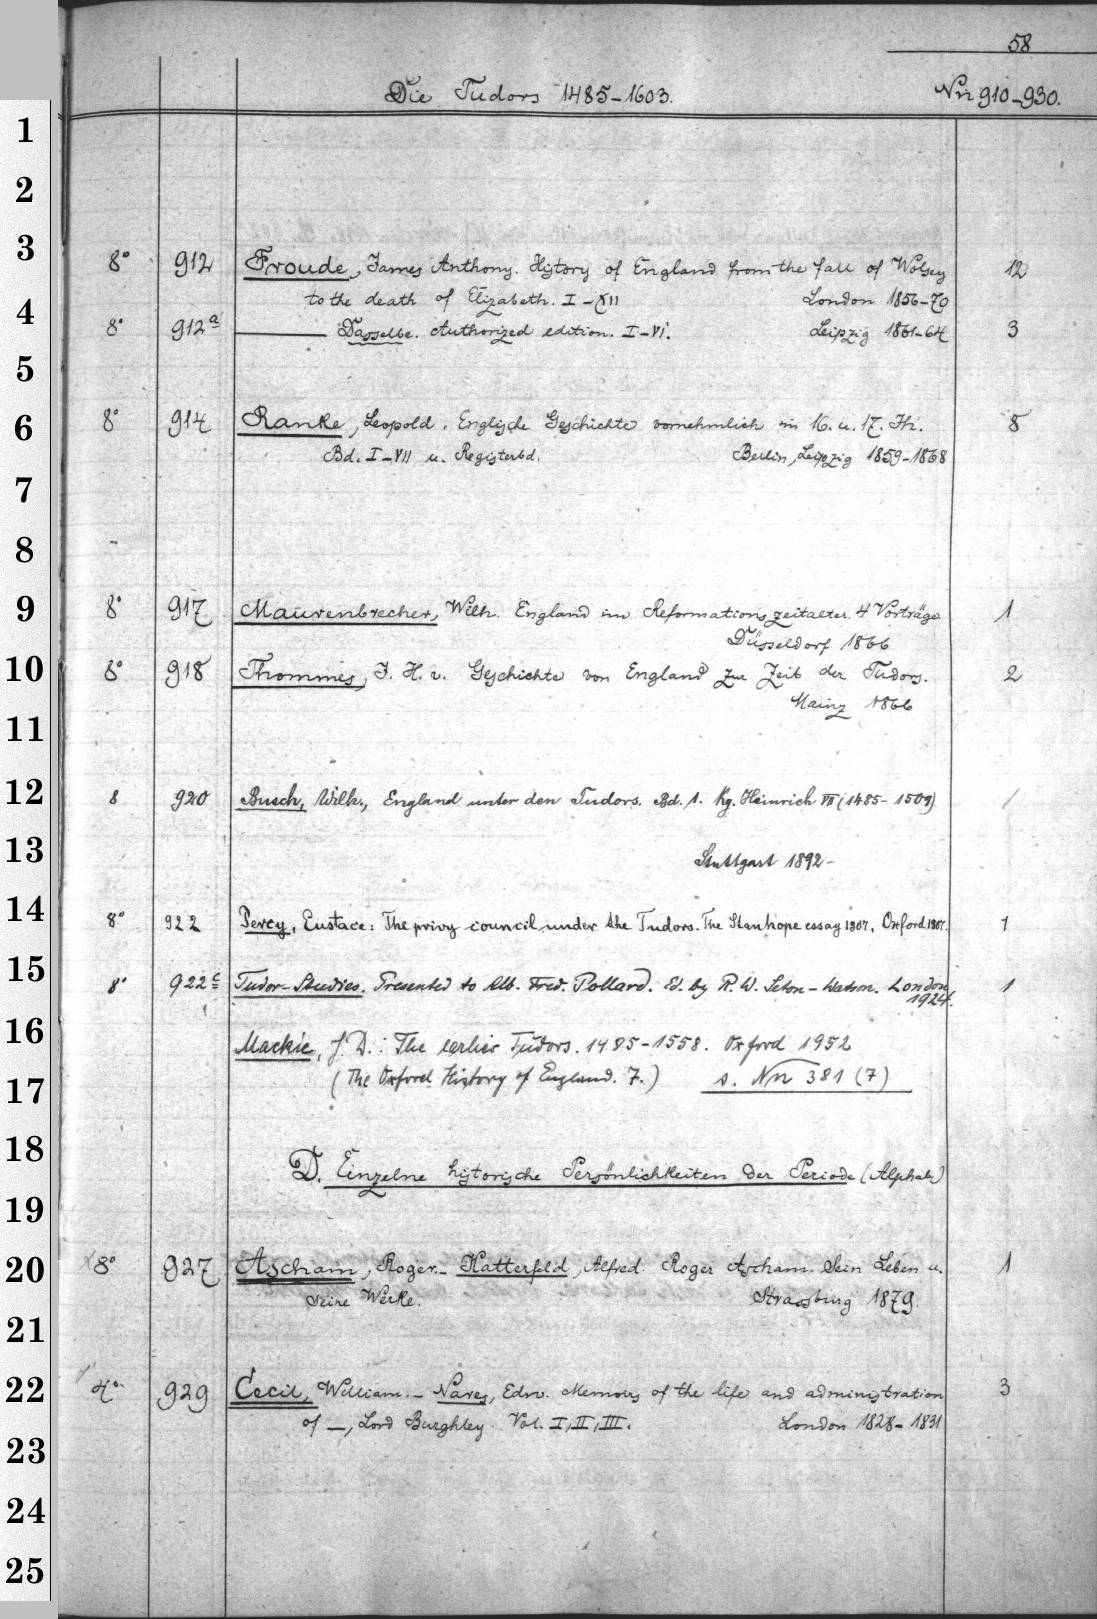 58
Die Tudors 1485-1603.
Nn 910-930.
1
2
3
8° 912 Froude, James Anthony. History of England from the fall of Wolsey 12
to the death of Elizabeth. I-XII London 1856-70
4
8° 912a ——— Dasselbe. Authorized edition. I-VI. Leipzig 1861-64 3
5
6
8° 914 Ranke, Leopold. Englische Geschichte vornehmlich im 16. u. 17. Jh. 8
Bd. I-VII u. Registerbd. Berlin, Leipzig 1859-1868
7
8
9
8° 917 Maurenbrecher, Wilh. England im Reformationszeitalter. 4 Vorträge. 1
Düsseldorf 1866
10
8° 918 Thommes, J. H. v. Geschichte von England zur Zeit der Tudors. 2
Mainz 1866
11
12
8 920 Busch, Wilh., England unter den Tudors. Bd. 1. Kg. Heinrich VII (1485-1509) 1
13
Stuttgart 1892-
14
8° 922 Percy, Eustace: The privy council under the Tudors. The Stanhope essay 1907. Oxford 1907. 1
15
8° 922c Tudor-Studies. Presented to Alb. Fred. Pollard. Ed. by R. W. Seton-Watson. London 1
1924.
16
Mackie, J. D.: The earlier Tudors. 1485-1558. Oxford 1952
17
(The Oxford History of England. 7.) s. Nn 381 (7)
18
D. Einzelne historische Persönlichkeiten der Periode (Alphab.)
19
20
8° 927 Ascham, Roger.- Katterfeld, Alfred. Roger Ascham. Sein Leben u. 1
seine Werke. Strassburg 1879
21
22
4° 929 Cecil, William.- Nares, Edw. Memoirs of the life and administration 3
of —, Lord Burghley. Vol. I, II, III. London 1828-1831
23
24
25